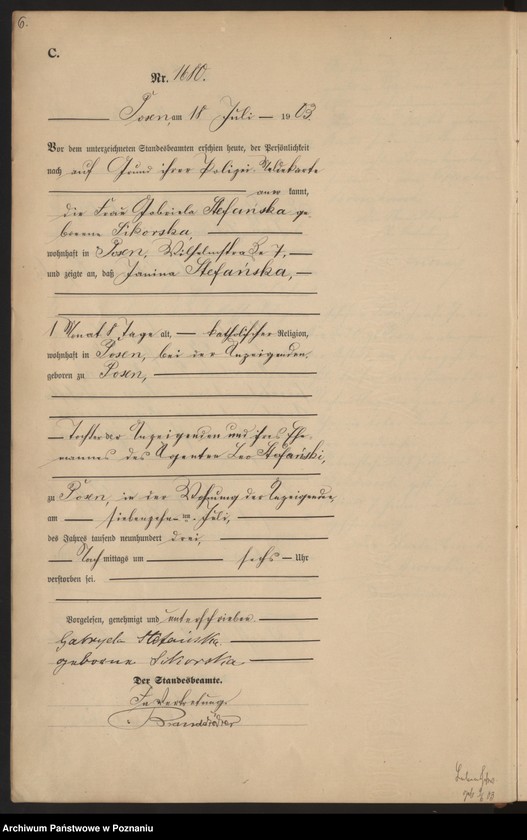 6.
C.
Nr. 1680.
Posen, am 18 Juli 1903.
Vor dem unterzeichneten Standesbeamten erschien heute, der Persönlichkeit
nach auf Grund ihrer Polizei Meldekarte
anerkannt,
die Frau Gabriela Stefańska ge-
borene Sikorska,
wohnhaft in Posen, Wilhelmstraße 7,
und zeigte an, daß Janina Stefańska,
1 Monat 8 Tage alt, katholischer Religion,
wohnhaft in Posen, bei der Anzeigenden,
geboren zu Posen,
Tochter der Anzeigenden und ihres Ehe-
mannes des Agenten Leo Stefański,
zu Posen, in der Wohnung der Anzeigenden
am siebenzehnten Juli,
des Jahres tausend neunhundert drei,
Nachmittags um sechs Uhr
verstorben sei.
Vorgelesen, genehmigt und unterschrieben
Gabryela Stefańska
geborene Sikorska
Der Standesbeamte.
In Vertretung.
Archiwum Państwowe w Poznaniu